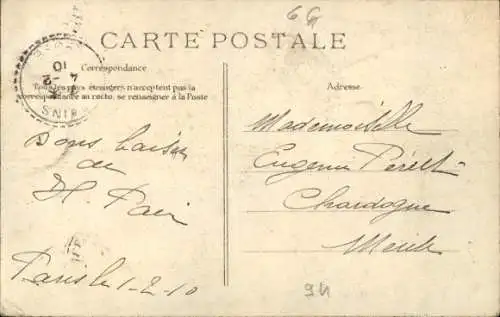 6G
CARTE POSTALE
Correspondance
Tous les pays étrangers n'acceptent pas la
correspondance au recto, se renseigner à la Poste
Adresse
bons baisers
de
H.
Paris le 1-2-10
Mademoiselle
Eugénie
Chardogne
Meuse
94